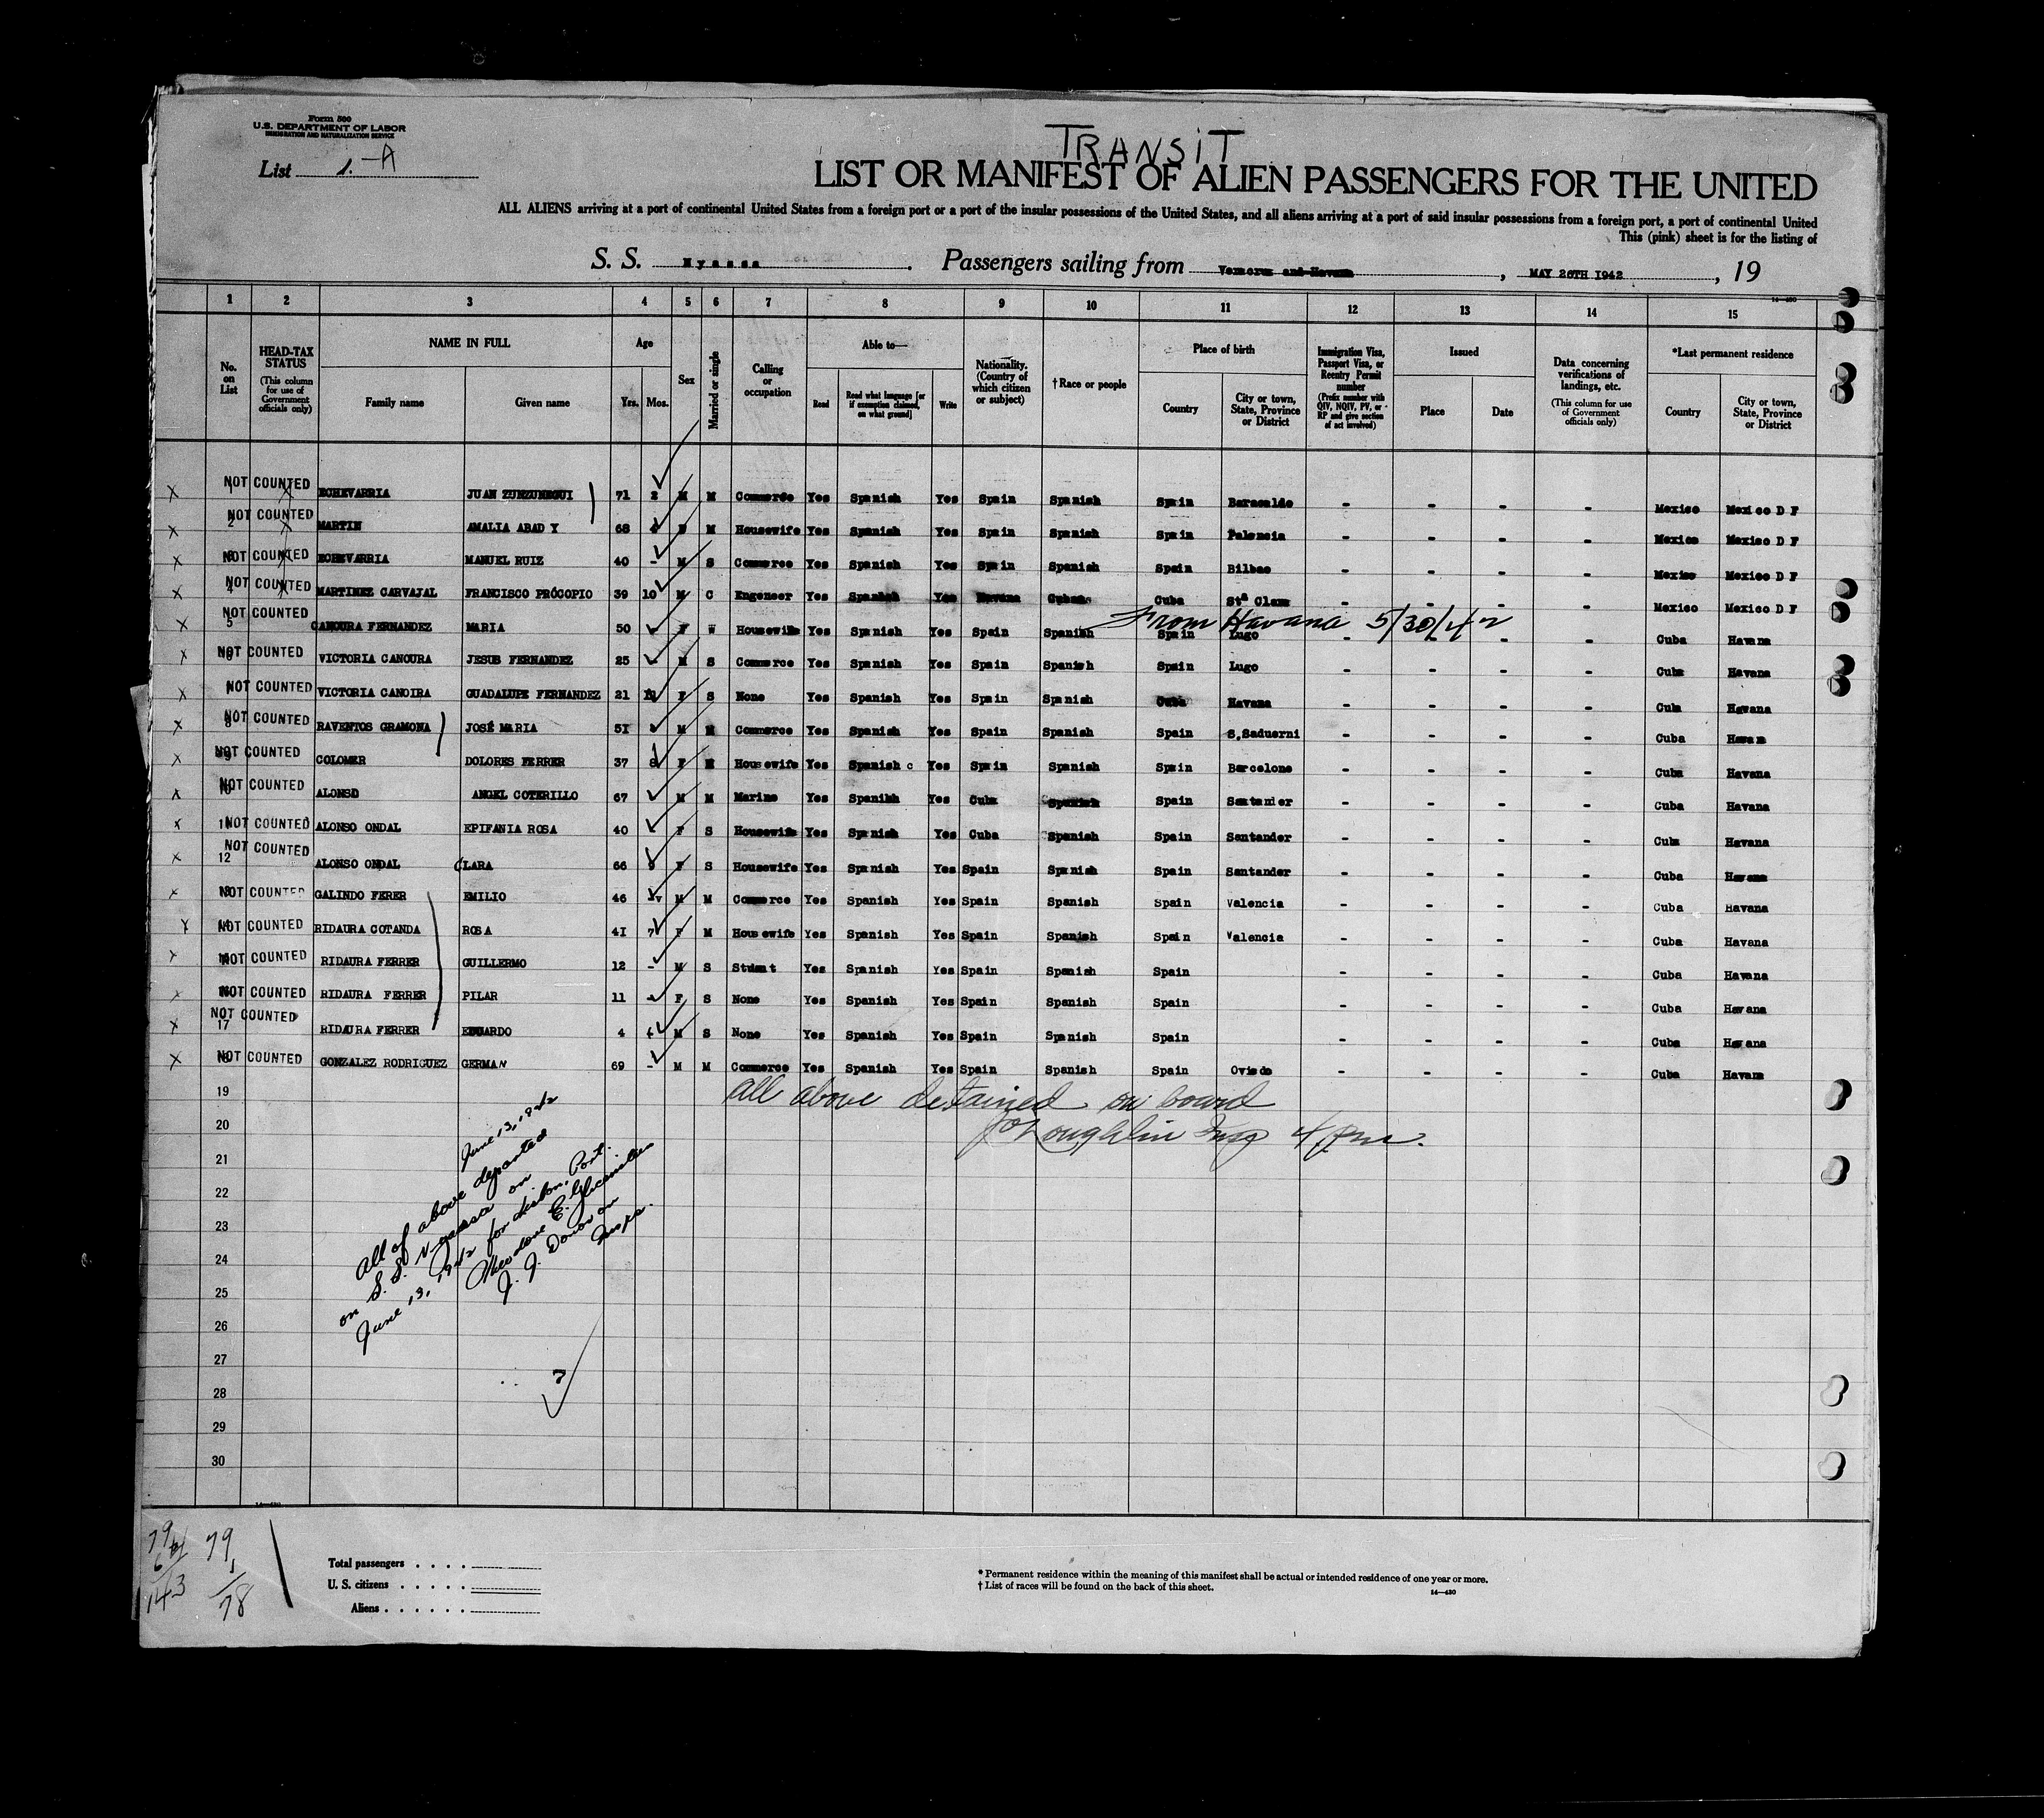 Form 500
U.S. DEPARTMENT OF LABOR
IMMIGRATION AND NATURALIZATION SERVICE
List 1.-A
TRANSIT
LIST OR MANIFEST OF ALIEN PASSENGERS FOR THE UNITED
ALL ALIENS arriving at a port of continental United States from a foreign port or a port of the insular possessions of the United States, and all aliens arriving at a port of said insular possessions from a foreign port, a port of continental United
This (pink) sheet is for the listing of
S. S. Nyassa. Passengers sailing from Veracruz and Havana, MAY 26TH 1942, 19
14—430
1 2 3 4 5 6 7 8 9 10 11 12 13 14 15
No. on List
HEAD-TAX STATUS (This column for use of Government officials only)
NAME IN FULL
Family name Given name
Age
Yrs. Mos.
Sex
Married or single
Calling or occupation
Able to—
Read Read what language [or if exemption claimed, on what ground] Write
Nationality. (Country of which citizen or subject)
†Race or people
Place of birth
Country City or town, State, Province or District
Immigration Visa, Passport Visa, or Reentry Permit number (Prefix number with QIV, NQIV, PV, or RP and give section of act involved)
Issued
Place Date
Data concerning verifications of landings, etc. (This column for use of Government officials only)
*Last permanent residence
Country City or town, State, Province or District
x 1 NOT COUNTED x ECHEVARRIA JUAN ZUNZUNEGUI 71 2 M M Commerce Yes Spanish Yes Spain Spanish Spain Baracaldo - - - - Mexico Mexico D F
x 2 NOT COUNTED x MARTIN AMALIA ABAD Y 68 F M Housewife Yes Spanish Yes Spain Spanish Spain Palencia - - - - Mexico Mexico D F
x 3 NOT COUNTED x ECHEVARRIA MANUEL RUIZ 40 - M S Commerce Yes Spanish Yes Spain Spanish Spain Bilbao - - - - Mexico Mexico D F
x 4 NOT COUNTED x MARTINEZ CARVAJAL FRANCISCO PRÓCOPIO 39 10 M C Engeneer Yes Spanish Yes Havana Cubano Cuba Sta Clara - - - - Mexico Mexico D F
From Havana 5/30/42
x 5 NOT COUNTED CANOURA FERNANDEZ MARIA 50 - F W Housewife Yes Spanish Yes Spain Spanish Spain Lugo - - - - Cuba Havana
x 6 NOT COUNTED VICTORIA CANOURA JESUS FERNANDEZ 25 - M S Commerce Yes Spanish Yes Spain Spanish Spain Lugo - - - - Cuba Havana
x 7 NOT COUNTED VICTORIA CANOIRA GUADALUPE FERNANDEZ 21 F S None Yes Spanish Yes Spain Spanish Cuba Havana - - - - Cuba Havana
x 8 NOT COUNTED RAVENTOS GRAMONA JOSÉ MARIA 51 M M Commerce Yes Spanish Yes Spain Spanish Spain S.Saduerni - - - - Cuba Havana
x 9 NOT COUNTED COLOMER DOLORES FERRER 37 8 F M Housewife Yes Spanish c Yes Spain Spanish Spain Barcelone - - - - Cuba Havana
x 10 NOT COUNTED ALONSO ANGEL COTERILLO 67 M M Marine Yes Spanish Yes Cuba Spanish Spain Santander - - - - Cuba Havana
x 11 NOT COUNTED ALONSO ONDAL EPIFANIA ROSA 40 F S Housewife Yes Spanish Yes Cuba Spanish Spain Santander - - - - Cuba Havana
x 12 NOT COUNTED ALONSO ONDAL CLARA 66 9 F S Housewife Yes Spanish Yes Spain Spanish Spain Santander - - - - Cuba Havana
x 13 NOT COUNTED GALINDO FERER EMILIO 46 M M Commerce Yes Spanish Yes Spain Spanish Spain Valencia - - - - Cuba Havana
x 14 NOT COUNTED RIDAURA COTANDA ROSA 41 7 F M Housewife Yes Spanish Yes Spain Spanish Spain Valencia - - - - Cuba Havana
x 15 NOT COUNTED RIDAURA FERRER GUILLERMO 12 - M S Student Yes Spanish Yes Spain Spanish Spain - - - - Cuba Havana
x 16 NOT COUNTED RIDAURA FERRER PILAR 11 - F S None Yes Spanish Yes Spain Spanish Spain - - - - Cuba Havana
x 17 NOT COUNTED RIDAURA FERRER EDUARDO 4 M S None Yes Spanish Yes Spain Spanish Spain - - - - Cuba Havana
x 18 NOT COUNTED GONZALEZ RODRIGUEZ GERMAN 69 - M M Commerce Yes Spanish Yes Spain Spanish Spain Oviedo - - - - Cuba Havana
19 All above detained on board
20 J O'Loughlin Insp 4 pm.
21
22
23
24
25
26
27
28
29
30
June 13, 1942
All of above departed
on S.S. Nyassa on
June 13, 1942 for Lisbon, Port.
Theodore E.
J. J. Donovan
Insprs.
7
14—430
79
64
143
79
1
78
Total passengers
U. S. citizens
Aliens
* Permanent residence within the meaning of this manifest shall be actual or intended residence of one year or more.
† List of races will be found on the back of this sheet.
14—430